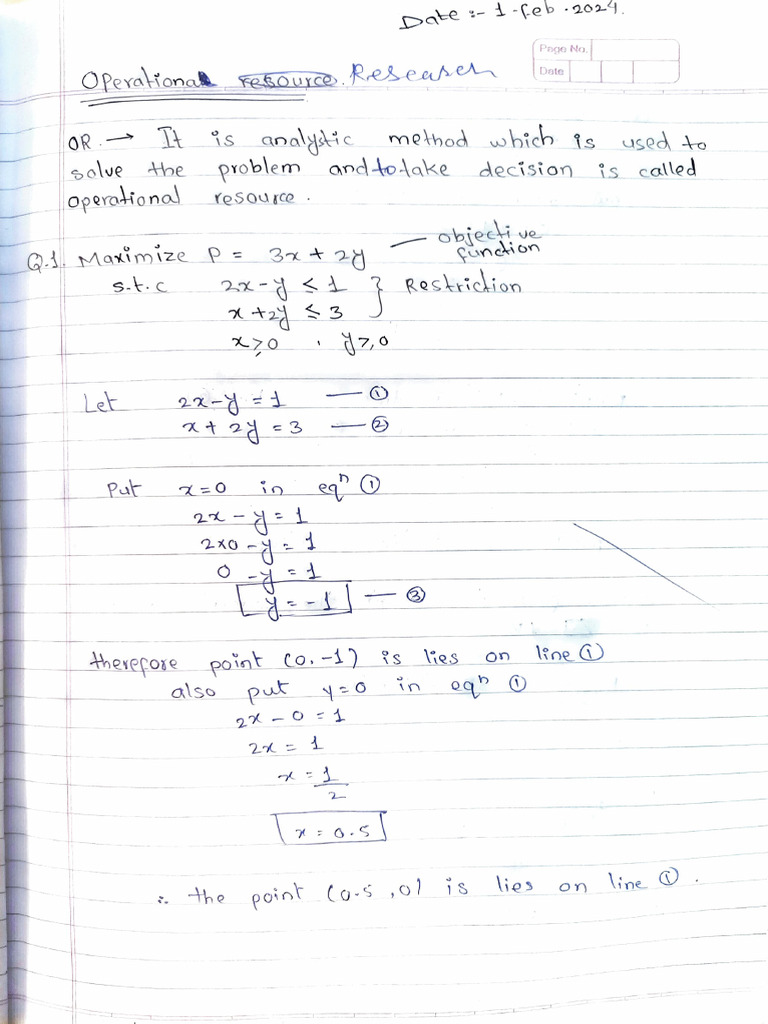 Date :- 1-feb.2024.
Page No.
Date
Operational resource. Research
OR. → It is analystic method which is used to
solve the problem and to take decision is called
operational resource.
Q.1. Maximize P = 3x + 2y — objective function
s.t.c 2x - y ≤ 1 } Restriction
x + 2y ≤ 3
x ≥ 0 , y ≥, 0
Let 2x - y = 1 — ①
x + 2y = 3 — ②
Put x = 0 in eqⁿ ①
2x - y = 1
2x0 - y = 1
0 - y = 1
y = -1 — ③
therefore point (0, -1) is lies on line ①
also put y = 0 in eqⁿ ①
2x - 0 = 1
2x = 1
x = 1/2
x = 0.5
∴ the point (0.5 , 0) is lies on line ①.